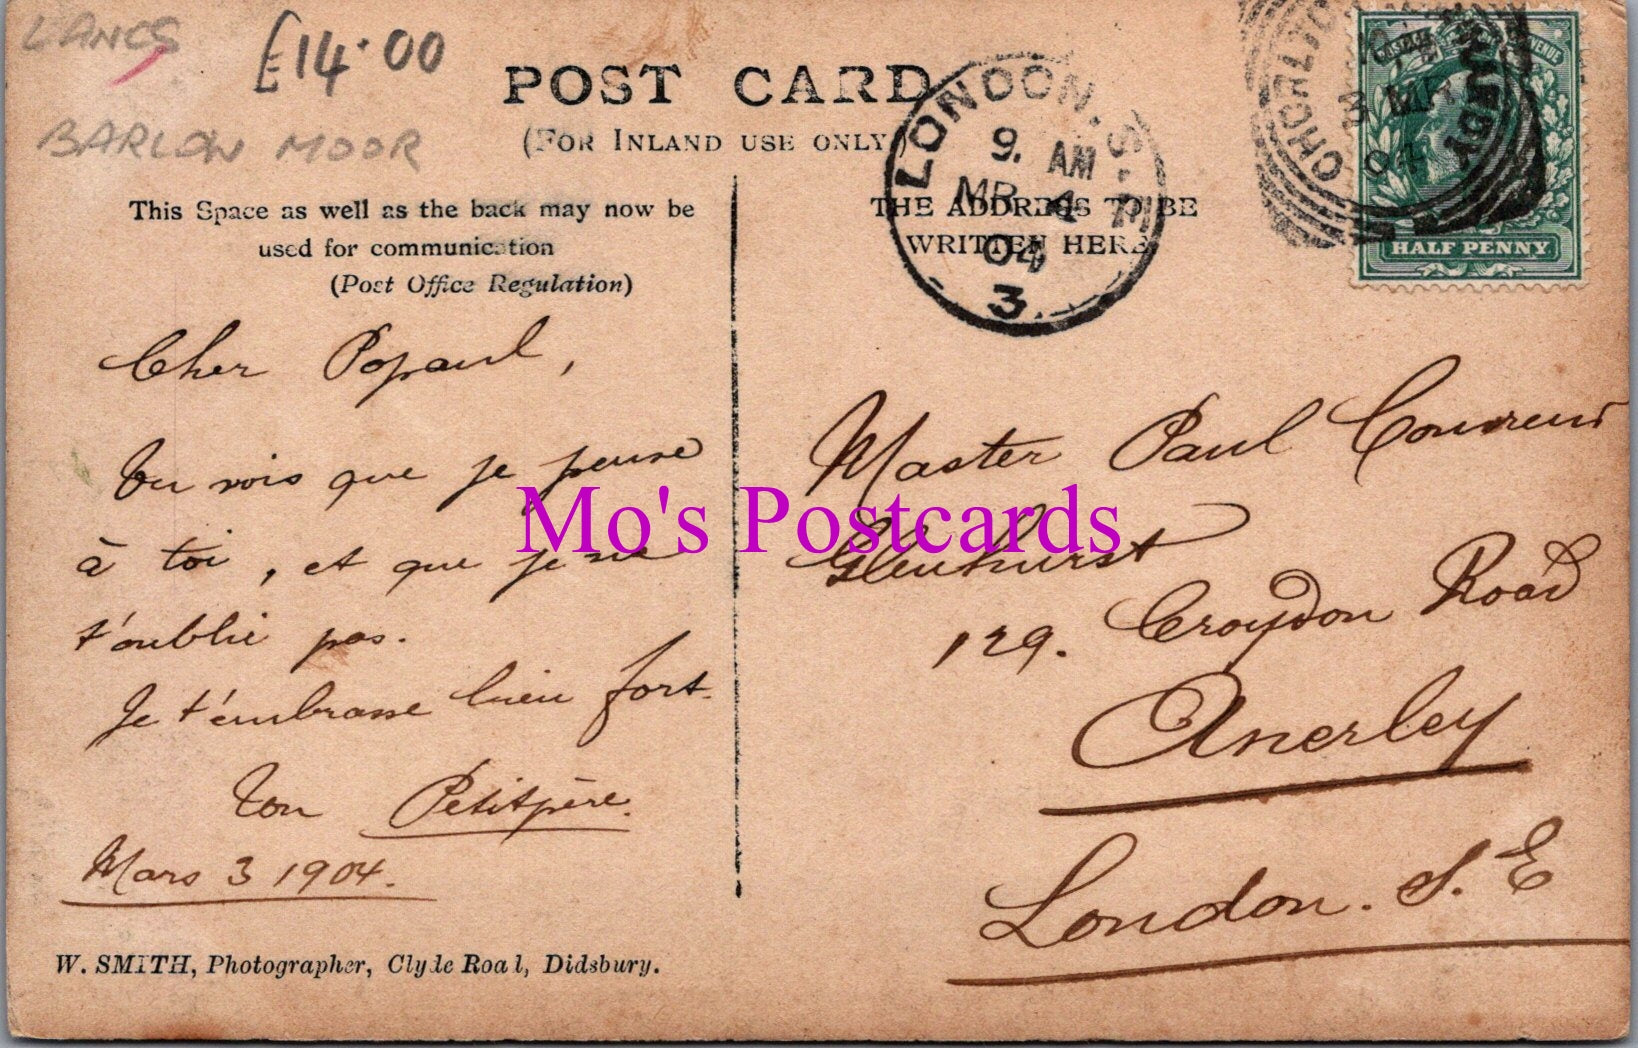 LANCS
£14.00
BARLOW MOOR
POST CARD
(FOR INLAND USE ONLY)
This Space as well as the back may now be
used for communication
(Post Office Regulation)
THE ADDRESS TO BE
WRITTEN HERE
LONDON. S.E
9. AM
MR 4
04
3
CHORLTO
MR
04
POSTAGE REVENUE
HALF PENNY
Cher Popaul,
Tu vois que je pense
à toi, et que je ne
t'oublie pas.
Je t'embrasse bien fort.
Ton Petitpère.
Mars 3 1904.
Master Paul
Glenhurst
129. Croydon Road
Anerley
London. S.E
Mo's Postcards
W. SMITH, Photographer, Clyde Road, Didsbury.